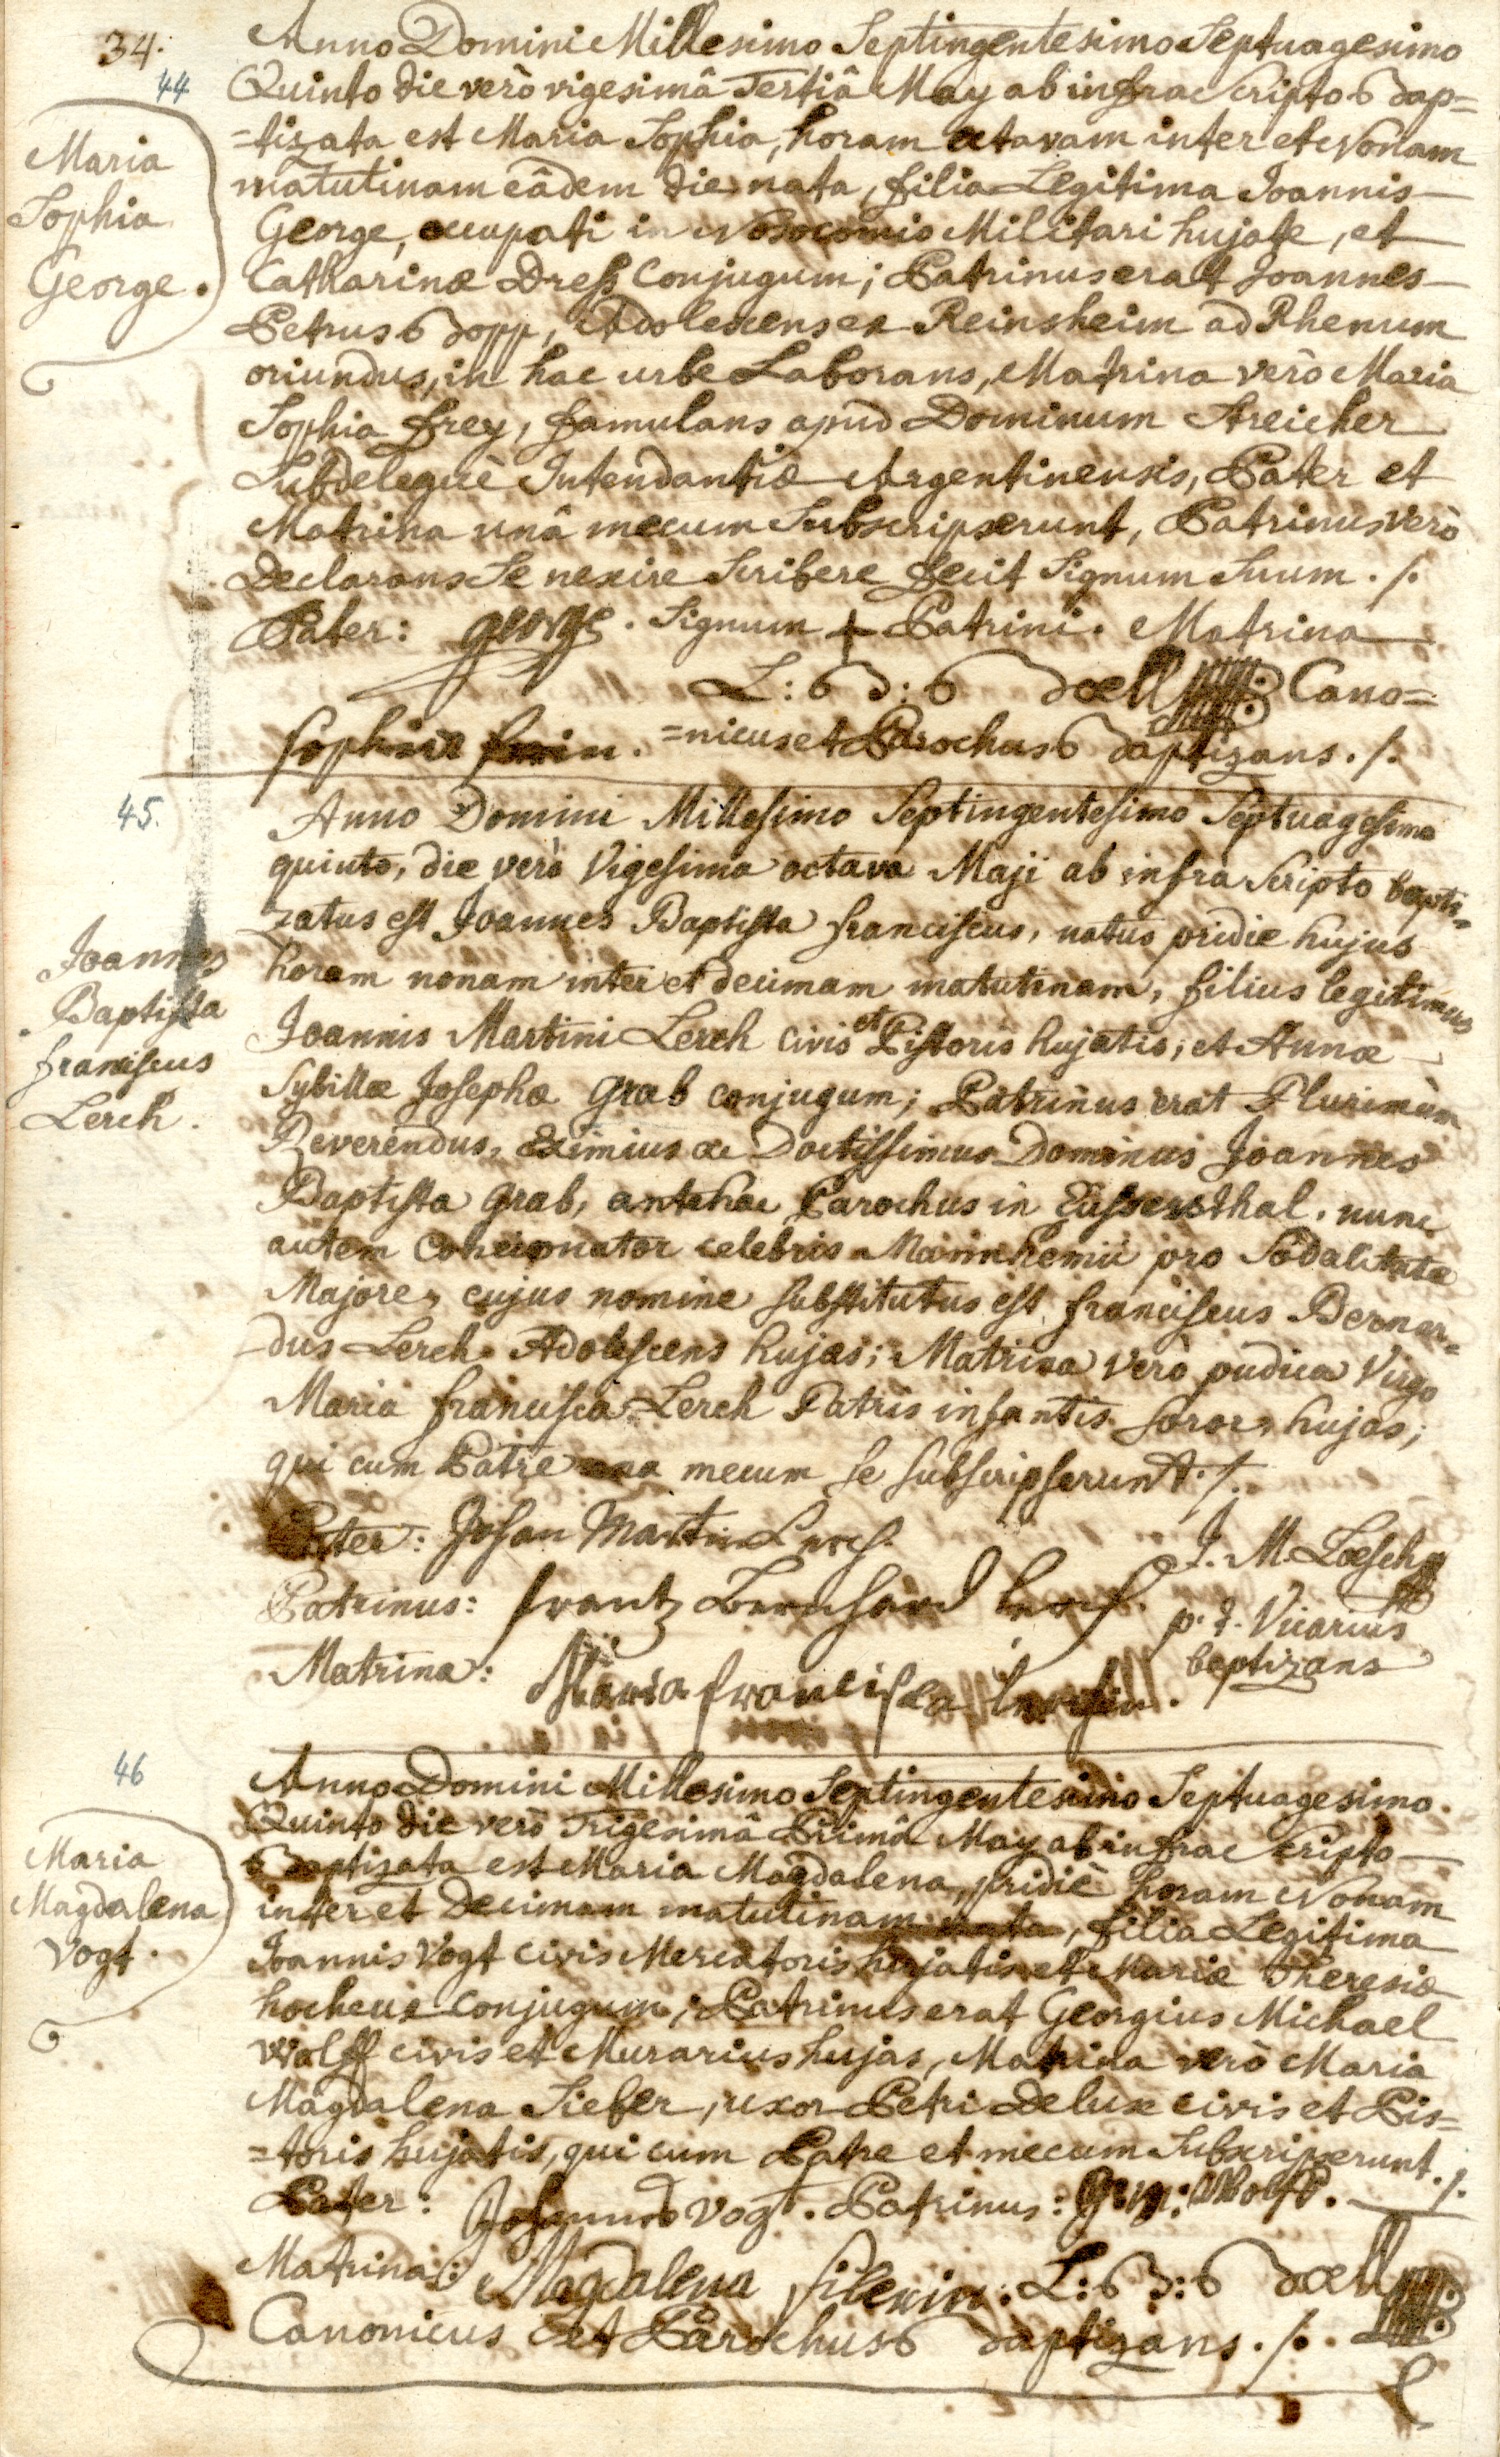 34.
Anno Domini Millesimo Septingentesimo Septuagesimo
44
Quinto die verò vigesimâ Tertiâ May ab infrascripto Bap=
=tizata est Maria Sophia, horam octavam inter et Nonam
matutinam eâdem die nata, filia Legitima Joannis
George, occupati in Nosocomio Militari hujate, et
Catharinæ Dress Conjugum; Patrinus erat Joannes
Petrus Bopp, Adolescens ex Reinsheim ad Rhenum
oriundus, in hac urbe Laborans, Matrina verò Maria
Sophia frey, famulans apud Dominum Streicher
Subdeleguè Intendantiæ Argentinensis, Pater et
Matrina unâ mecum Subscripserunt, Patrinus verò
Declarans Se nescire Scribere fecit Signum Suum ./.
Maria
Sophia
George.
Pater: george. Signum + Patrini. Matrina
L: B: Boell Cano=
sophia freiin. =nicus et Parochus Baptizans ./.
45.
Anno Domini Millesimo Septingentesimo Septuagesimo
quinto, die verò Vigesima octava Maji ab infra scripto bapti-
zatus est Joannes Baptista franciscus, natus pridie hujus
horam nonam inter et decimam matutinam, filius legitimus
Joannis Martini Lerch civis et Pistoris hujatis, et Annæ
Sybillæ Josephæ Grab conjugum; Patrinus erat Plurimùm
Reverendus, Eximius ac Doctissimus Dominus Joannes
Baptista Grab, antehac Parochus in Eusserthal, nunc
autem Concionator celebris Mannhemii pro Sodalitate
Majore, cujus nomine substitutus est franciscus Bernar-
dus Lerch Adolescens hujas; Matrina verò pudica Virgo
Maria francisca Lerch Patris infantis soror, hujas;
qui cum Patre una mecum se subscripserunt ./.
Joannes
Baptista
franciscus
Lerch.
Pater: Johan Martin Lerch.
J. M. Loesch
Patrinus: frantz Bernhard Lerch.
p. t. Vicarius
baptizans
Matrina: Maria francisca Lerchin.
46
Anno Domini Millesimo Septingentesimo Septuagesimo
Quinto die verò Trigesimâ Primâ May ab infrascripto
Baptizata est Maria Magdalena, pridiè horam Nonam
inter et Decimam matutinam nata, filia Legitima
Joannis Vogt civis Mercatoris hujatis et Mariæ Theresiæ
hocheux conjugum; Patrinus erat Georgius Michael
Wolff civis et Murarius hujas, Matrina verò Maria
Magdalena Sieber, uxor Petri Delux civis et Pis=
=toris hujatis, qui cum Patre et mecum Subscripserunt ./.
Maria
Magdalena
Vogt.
Pater: Johannes Vogt. Patrinus: G: M: Wolff.
Matrina: Magdalena siberin. L: B: Boell
Canonicus et Parochus Baptizans ./.